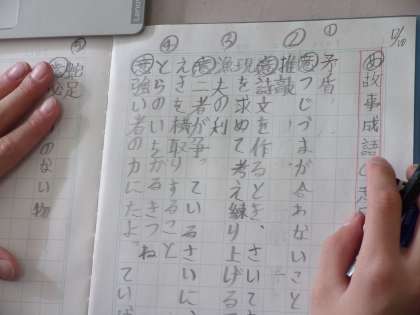 5/10
め 故事成語の意
①
矛盾
意 つじつまが合わないこと
②
推敲
意 詩文を作るとき、さいて
現を求めて考え練り上げる
③
漁夫の利
意 二者が争っているさいに、
えきを横取りすること
④
とらのいをかるきつね
意 強い者の力にたよっていば
⑤
蛇足
意
のない物
Lenovo